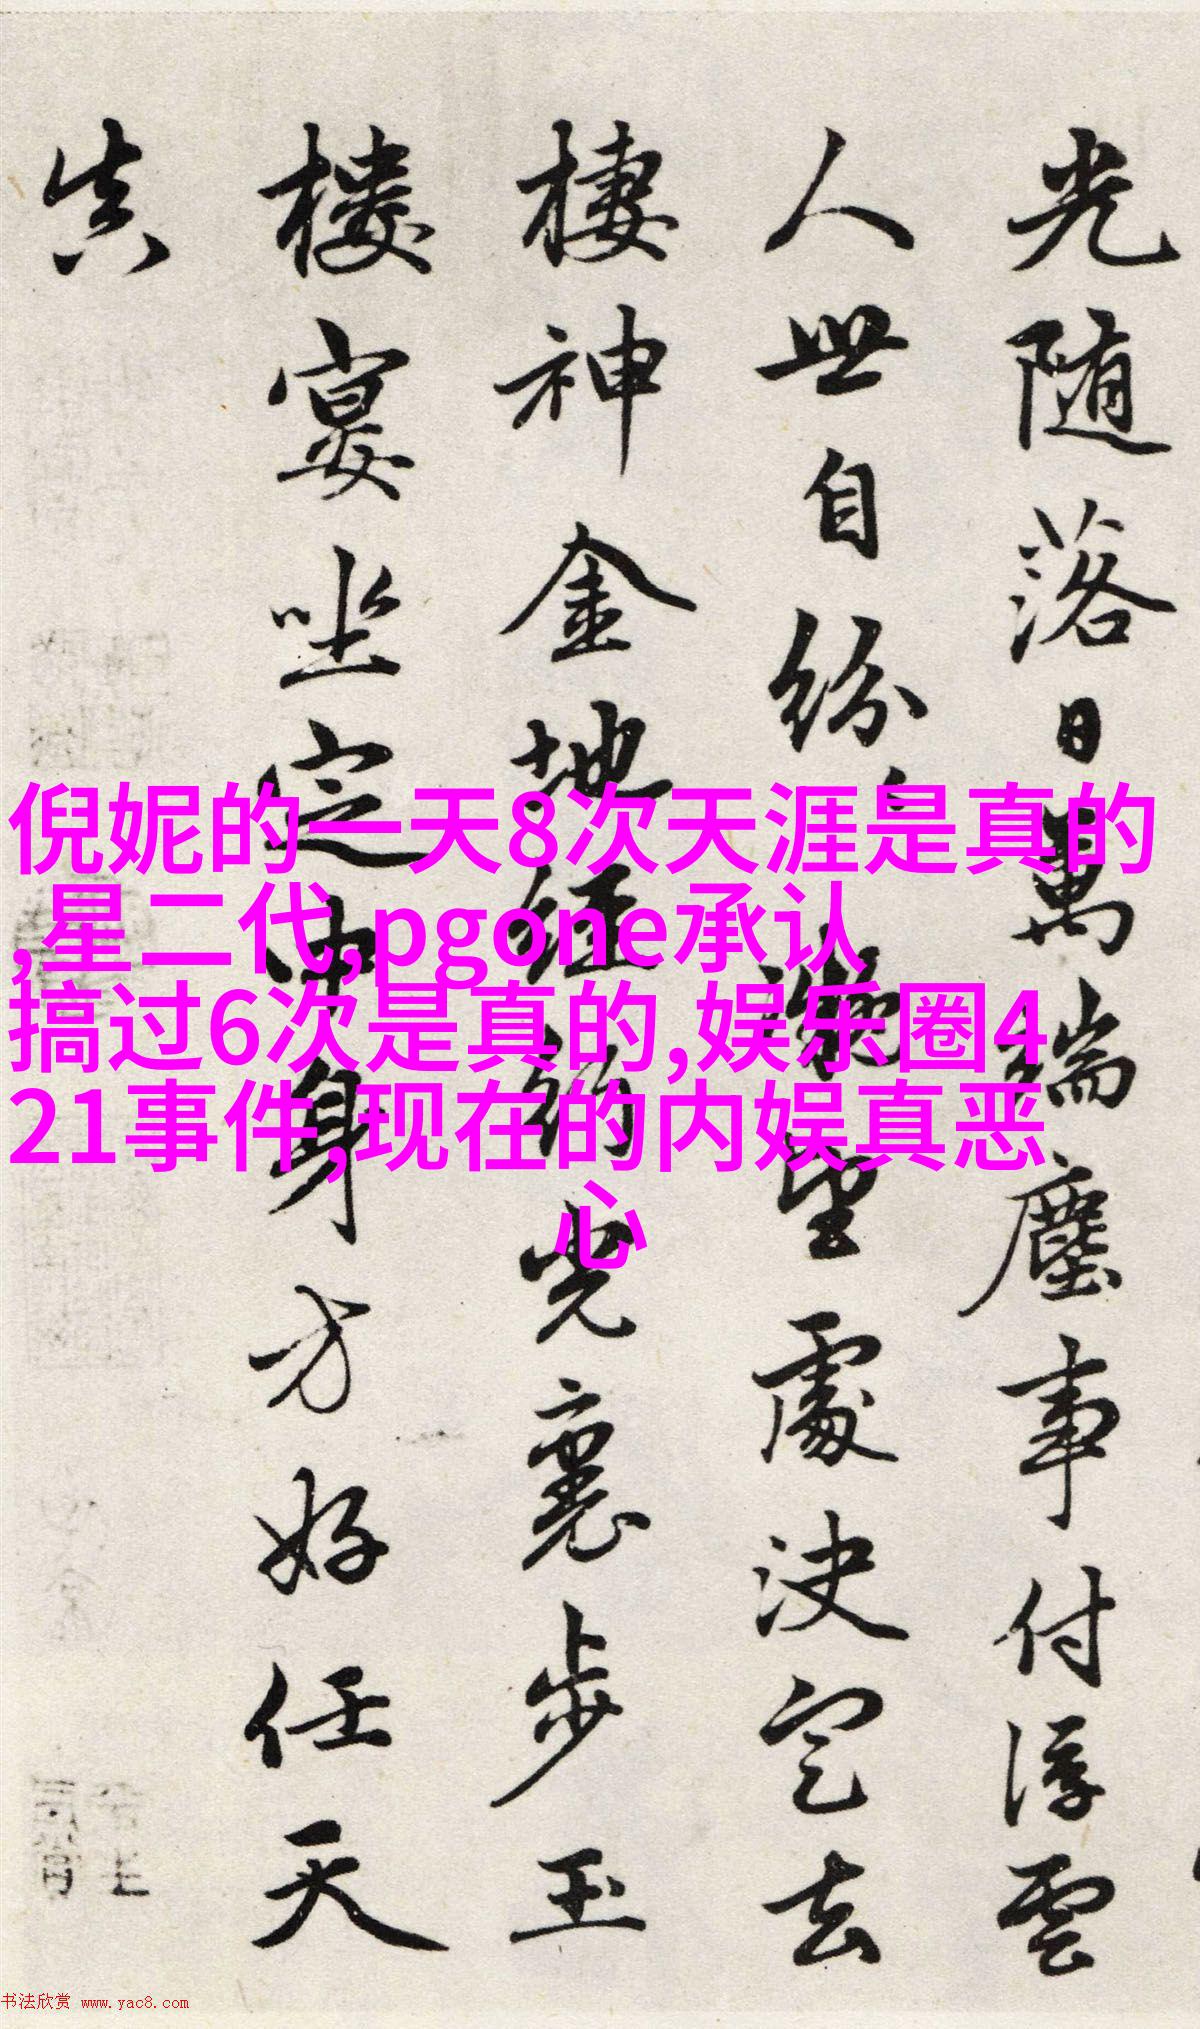 光随落日萬端塵事付浮雲
人世自紛凝望處決定去
棲神金地經行光裏步玉
樓宴坐定中身方好任天
真
倪妮的一天8次天涯是真的
,星二代,pgone承认
搞过6次是真的,娱乐圈4
21事件,现在的内娱真恶
心
书法欣赏 www.yac8.com